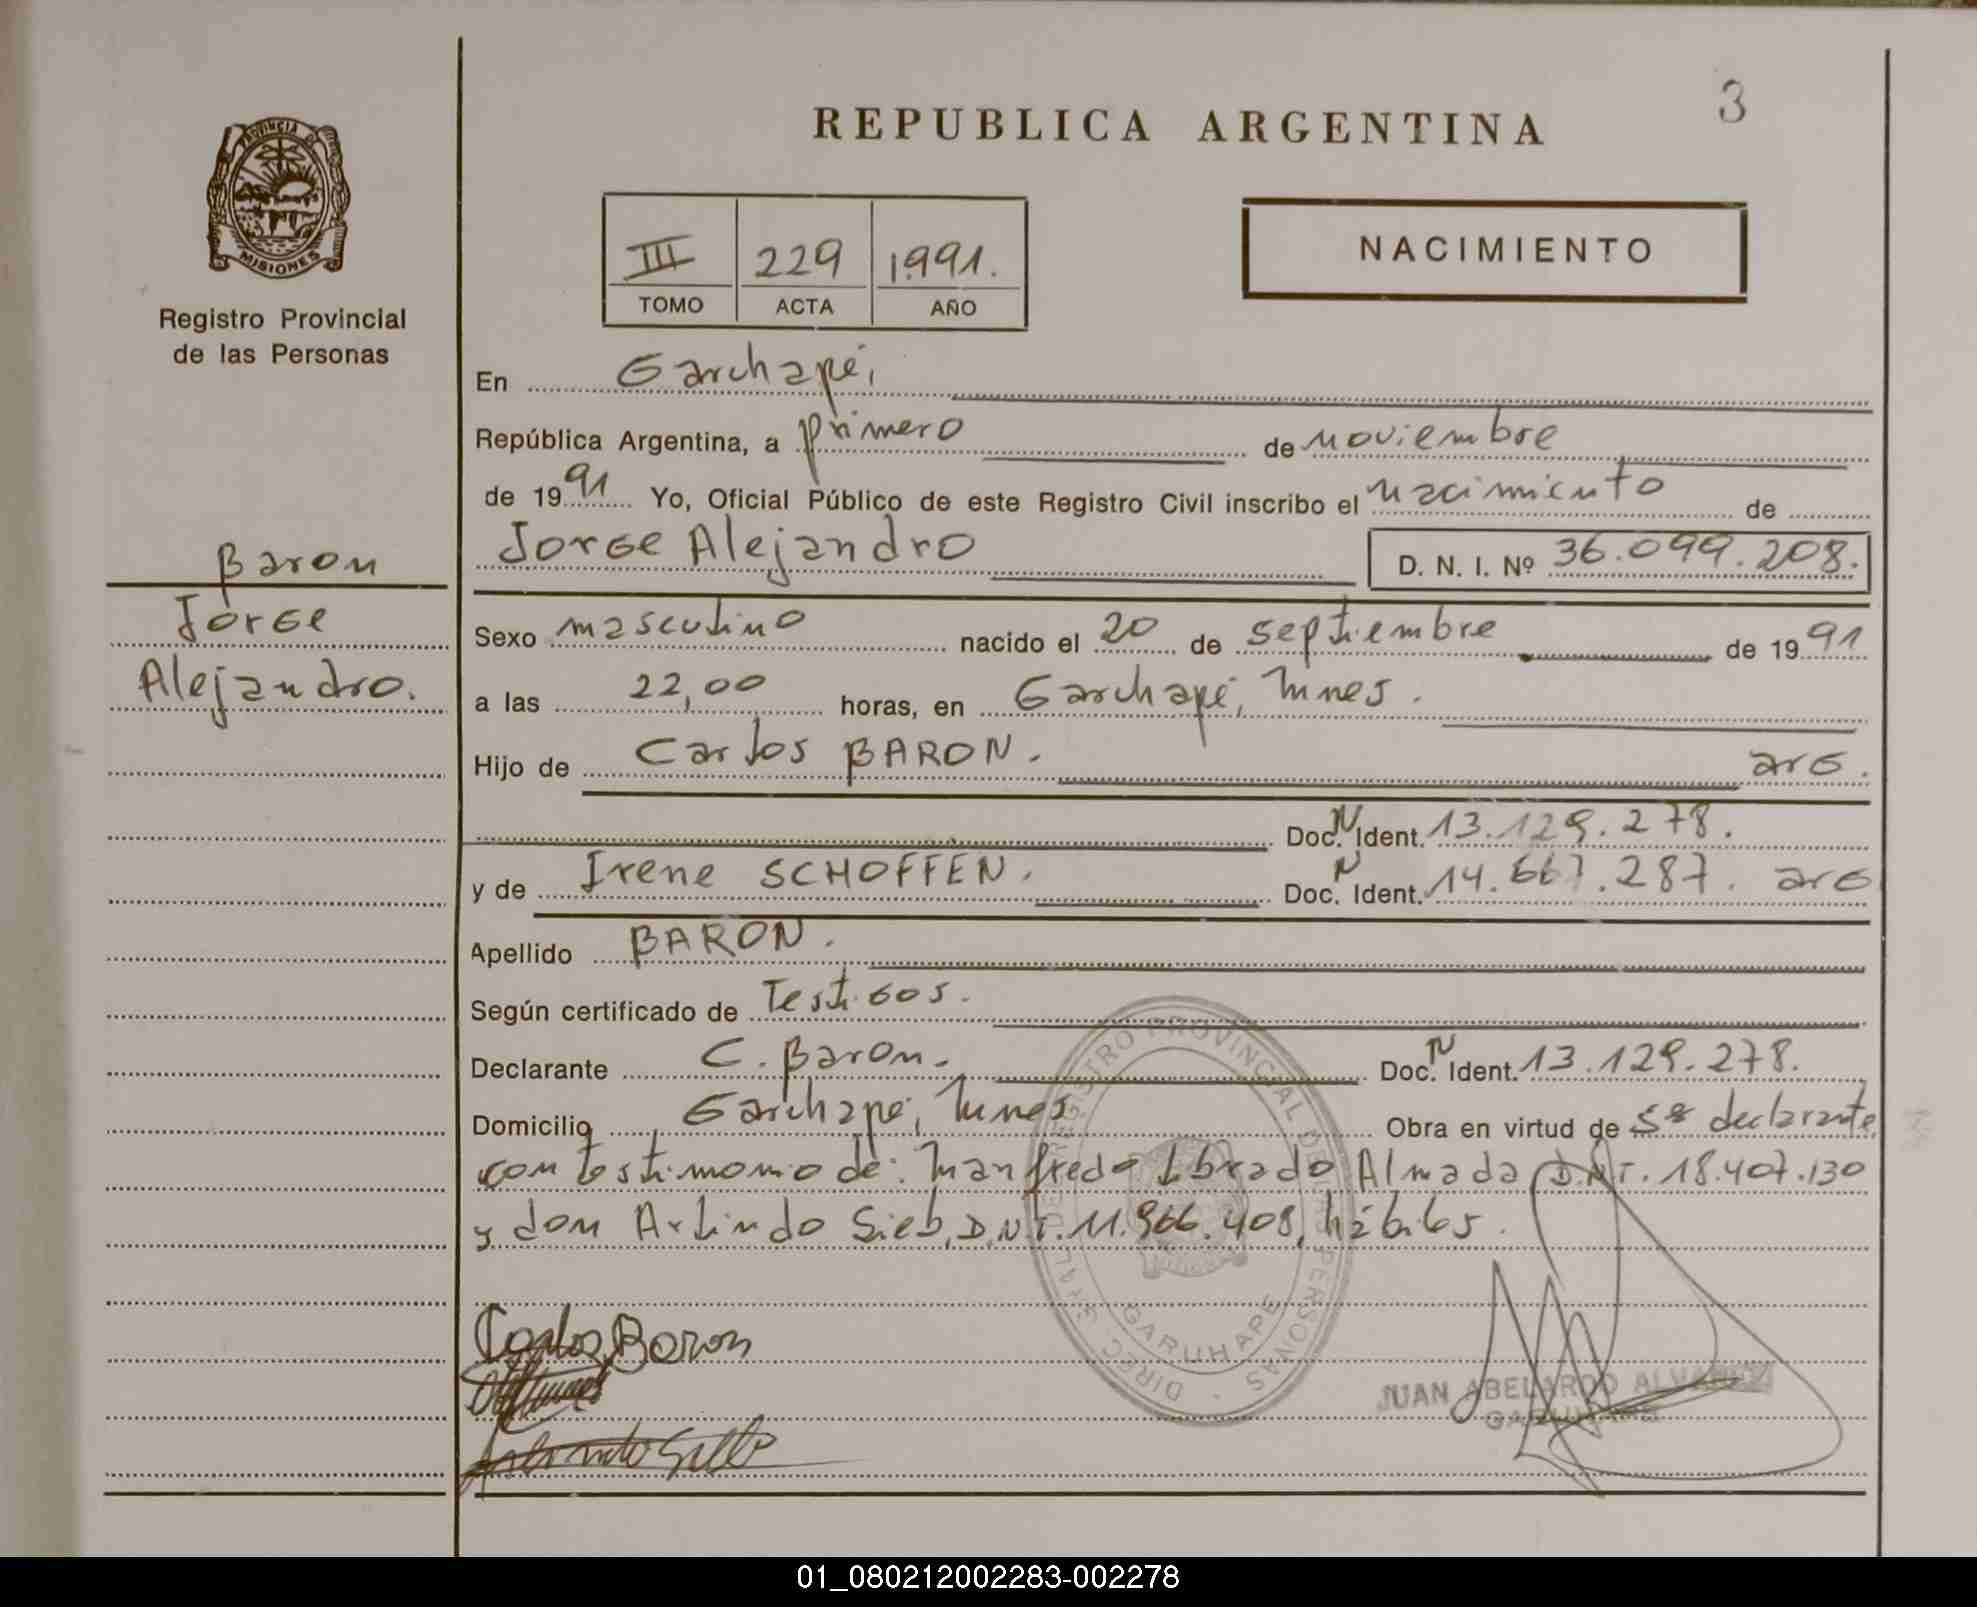 3
REPUBLICA ARGENTINA
PROVINCIA DE
MISIONES
Registro Provincial
de las Personas
III 229 1991.
TOMO ACTA AÑO
NACIMIENTO
En Garuhapé,
República Argentina, a primero de noviembre
de 1991 Yo, Oficial Público de este Registro Civil inscribo el nacimiento de
Jorge Alejandro D. N. I. Nº 36.099.208.
Baron
Jorge
Alejandro.
Sexo masculino nacido el 20 de septiembre de 1991
a las 22,00 horas, en Garuhapé, Mnes.
Hijo de Carlos BARON. arg.
Doc. N Ident. 13.129.278.
y de Irene SCHOFFEN. Doc. N Ident. 14.667.287. arg
Apellido BARON.
Según certificado de Testigos.
Declarante C. Baron. Doc. N Ident. 13.129.278.
Domicilio Garuhapé, Mnes Obra en virtud de ser declarante
con testimonio de: Manfredo Librado Almada D.N.I. 18.407.130
y don Arlindo Sieb, D.N.I. 11.966.408, hábiles.
DIREC. GRAL. DE REGISTRO PROVINCIAL DE PERSONAS
GARUHAPE
Carlos Baron
JUAN ABELARDO ALVAREZ
GARUHAPE
01_080212002283-002278